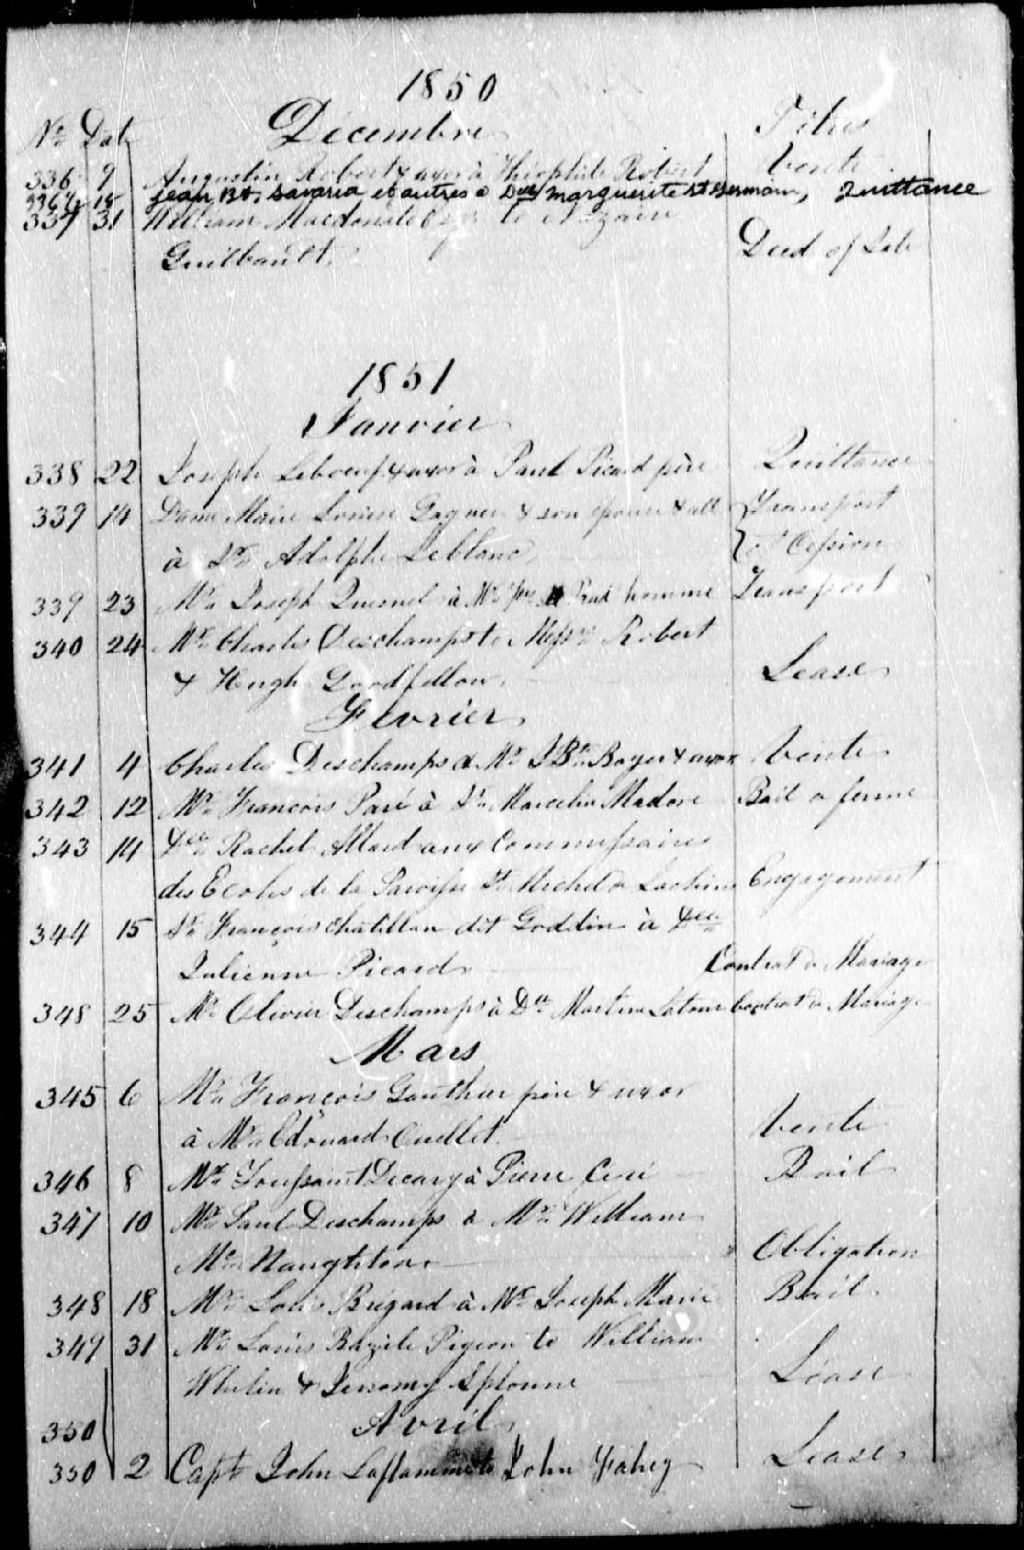 1850
No Date Décembre Titres
336 9 Augustin Robert & uxor à Théophile Robert Vente
336½ 15 Jean Bt. Savaria et autres à Dme Marguerite St Germain, Quittance
337 31 William Macdonald to Nazaire
Guilbault. Deed of Sale
1851
Janvier
338 22 Joseph Leboeuf & uxor à Paul Picard père Quittance
339 14 Dame Marie Louise Gagner & son Epoux & all Transport
à Sr Adolphe Leblanc, et Cession
339 23 Mr Joseph Quesnel à Mr Prud'homme Transport
340 24 Mr Charles Deschamps to Messrs Robert
& Hugh Goodfellow. Lease
Fevrier
341 4 Charles Deschamps à Mr J Bte Boyer & uxor Vente
342 12 Mr François Paré à Sr Marcelin Madore Bail a ferme
343 14 Dlle Rachel Allard aux Commissaires
des Ecoles de la Paroisse St Michel de Lachine Engagement
344 15 Sr François Chatillon dit Goddin à Dlle
Julienne Picard Contrat de Mariage
348 25 Mr Olivier Deschamps à Dlle Martine Latour Contrat de Mariage
Mars
345 6 Mr François Gauthier père & uxor
à Mr Edouard Ouellet. Vente
346 8 Mr Toussaint Decary à Pierre Bail
347 10 Mr Paul Deschamps à Mr William
McNaughton Obligation
348 18 Mr Louis à Mr Joseph Marie Bail
349 31 Mr Louis Bazile Pigeon to William
Whelin & Lease
Avril
350
350 2 Capt John Laflamme to John Fahey Lease